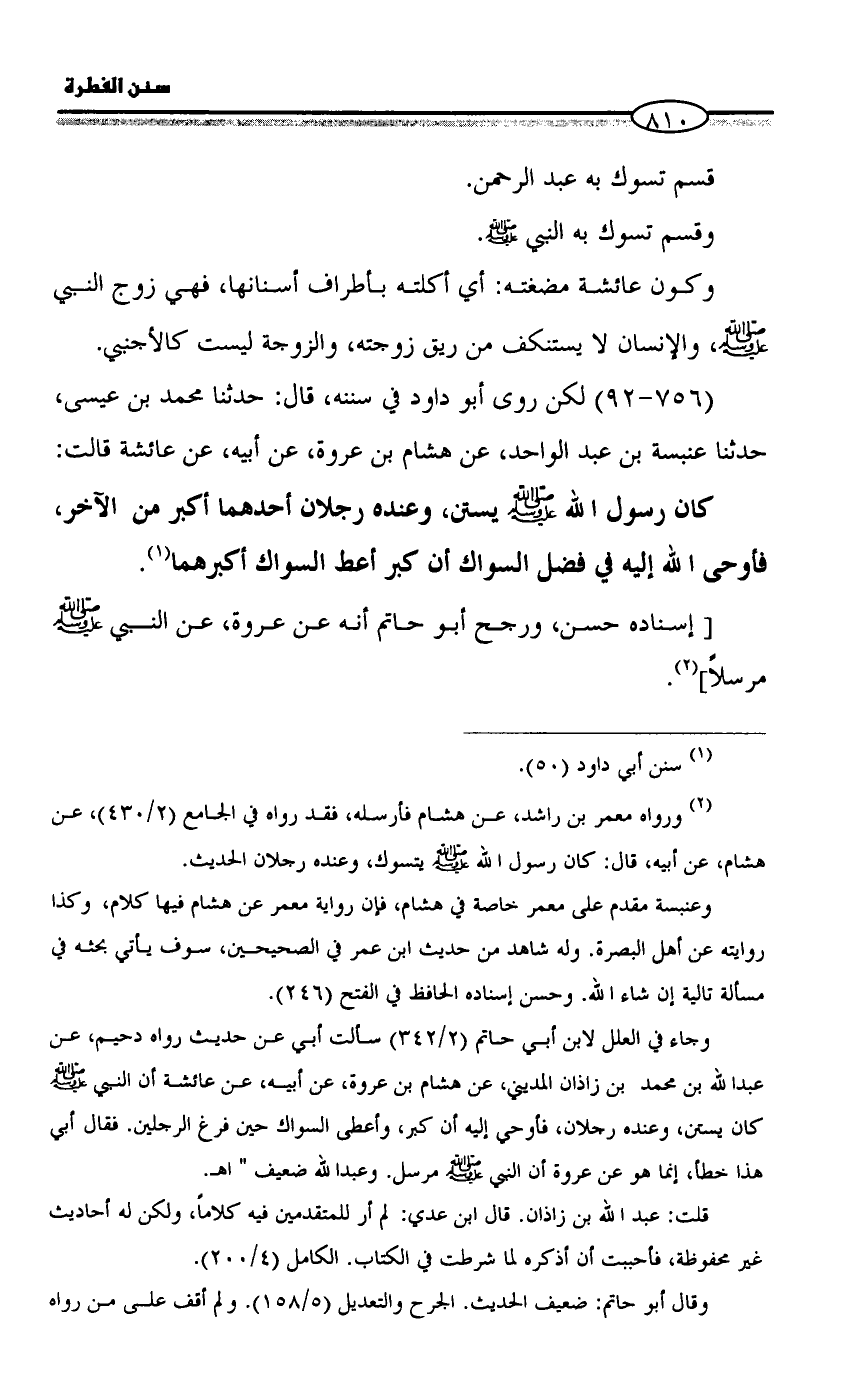 سنن الفطرة
٨١٠
قسم تسوك به عبد الرحمن.
وقسم تسوك به النبي ﷺ.
وكون عائشة مضغته: أي أكلته بأطراف أسنانها، فهي زوج النبي
ﷺ، والإنسان لا يستنكف من ريق زوجته، والزوجة ليست كالأجنبي.
(٧٥٦-٩٢) لكن روى أبو داود في سننه، قال: حدثنا محمد بن عيسى،
حدثنا عنبسة بن عبد الواحد، عن هشام بن عروة، عن أبيه، عن عائشة قالت:
كان رسول الله ﷺ يستن، وعنده رجلان أحدهما أكبر من الآخر،
فأوحى الله إليه في فضل السواك أن كبر أعط السواك أكبرهما(١).
[ إسناده حسن، ورجح أبو حاتم أنه عن عروة، عن النبي ﷺ
مرسلاً](٢).
(١) سنن أبي داود (٥٠).
(٢) ورواه معمر بن راشد، عن هشام فأرسله، فقد رواه في الجامع (٤٣٠/٢)، عن
هشام، عن أبيه، قال: كان رسول الله ﷺ يتسوك، وعنده رجلان الحديث.
وعنبسة مقدم على معمر خاصة في هشام، فإن رواية معمر عن هشام فيها كلام، وكذا
روايته عن أهل البصرة. وله شاهد من حديث ابن عمر في الصحيحين، سوف يأتي بحثه في
مسألة تالية إن شاء الله. وحسن إسناده الحافظ في الفتح (٢٤٦).
وجاء في العلل لابن أبي حاتم (٣٤٢/٢) سألت أبي عن حديث رواه دحيم، عن
عبدالله بن محمد بن زاذان المديني، عن هشام بن عروة، عن أبيه، عن عائشة أن النبي ﷺ
كان يستن، وعنده رجلان، فأوحي إليه أن كبر، وأعطى السواك حين فرغ الرجلين. فقال أبي
هذا خطأ، إنما هو عن عروة أن النبي ﷺ مرسل. وعبدالله ضعيف " اهـ.
قلت: عبد الله بن زاذان. قال ابن عدي: لم أر للمتقدمين فيه كلاماً، ولكن له أحاديث
غير محفوظة، فأحببت أن أذكره لما شرطت في الكتاب. الكامل (٢٠٠/٤).
وقال أبو حاتم: ضعيف الحديث. الجرح والتعديل (١٥٨/٥). ولم أقف على من رواه